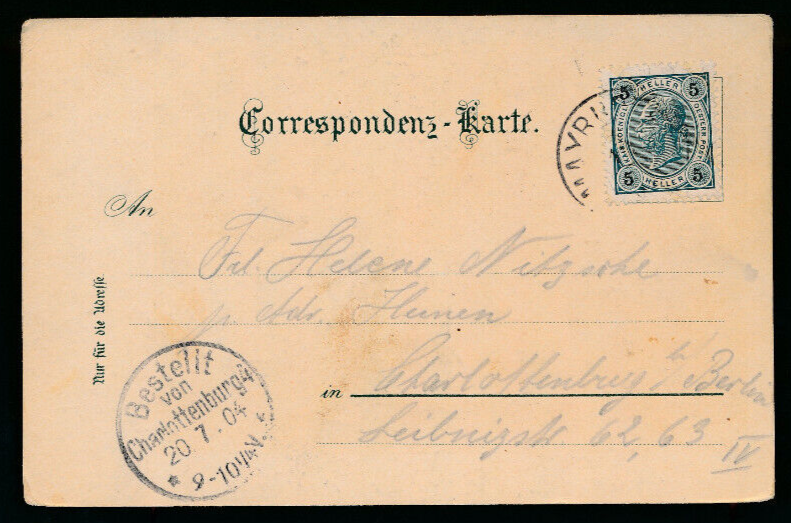 Correspondenz-Karte.
5 HELLER 5
KAIS. KOENIGL. OESTERR. POST
5 HELLER 5
MAYRH
An
Frl. Helene Nitzsche
p. Adr. Hunen
Nur für die Adresse
in Charlottenburg b/ Berlin
Leibnizstr 62, 63
IV
Bestellt
von
Charlottenburg 4
20 7. 04
* 9-10¼V.